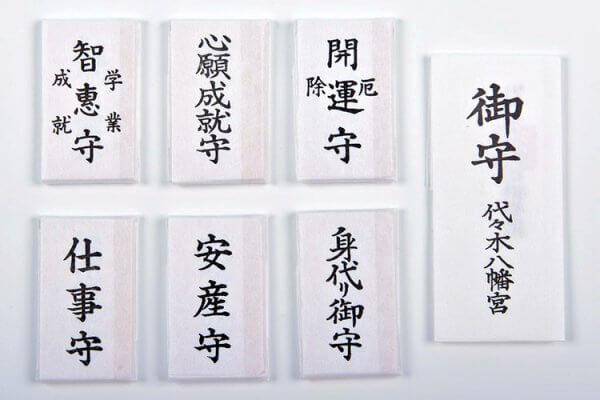 学業
智惠守
成就
心願成就守
厄
開運守
除
御守
代々木八幡宮
仕事守
安産守
身代り御守